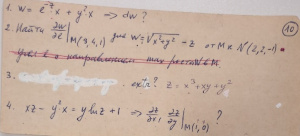 1. w = e^{-z}x + y²x ⇒ dw?
10
2. Найти ∂w/∂ℓ |M(3,4,1) для w = √(x²+y²) - z от M к N(2,2,-1)
3. extr? z = x³ + xy + y²
4. xz - y²x = y ln z + 1 ⇒ ∂z/∂x, ∂z/∂y |M(1,0) ?